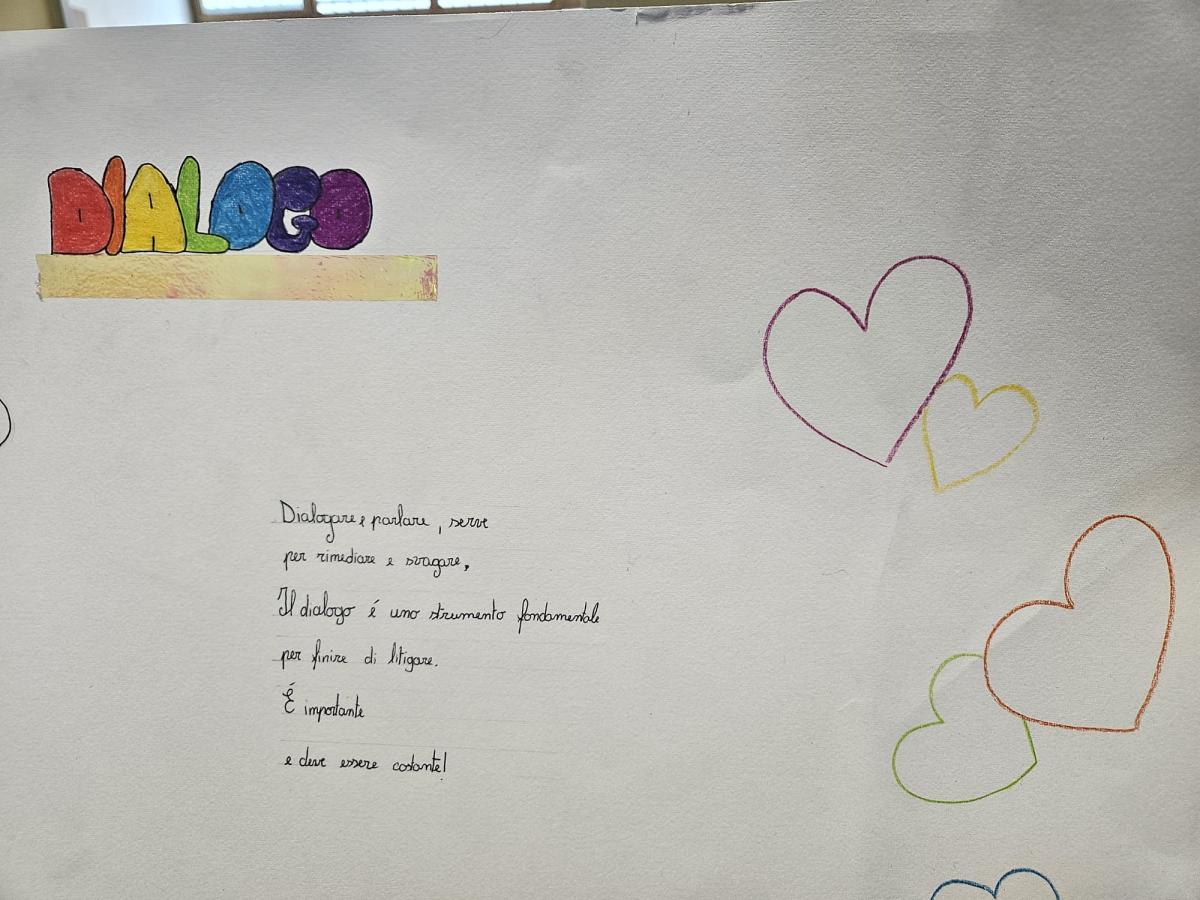 DIALOGO
Dialogare e parlare, serve
per rimediare e svagare,
Il dialogo é uno strumento fondamentale
per finire di litigare.
É importante
e deve essere costante!